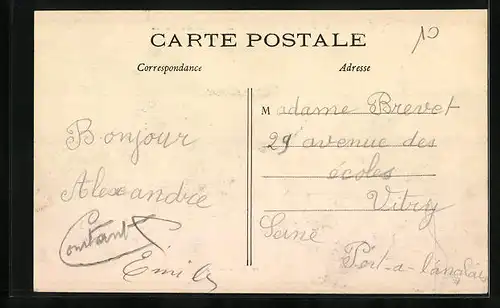 CARTE POSTALE
10
Correspondance
Adresse
Bonjour
Alexandre
Constant
Emile
Madame Brevet
29 avenue des
écoles
Vitry
Seine
Port-a-l'anglais